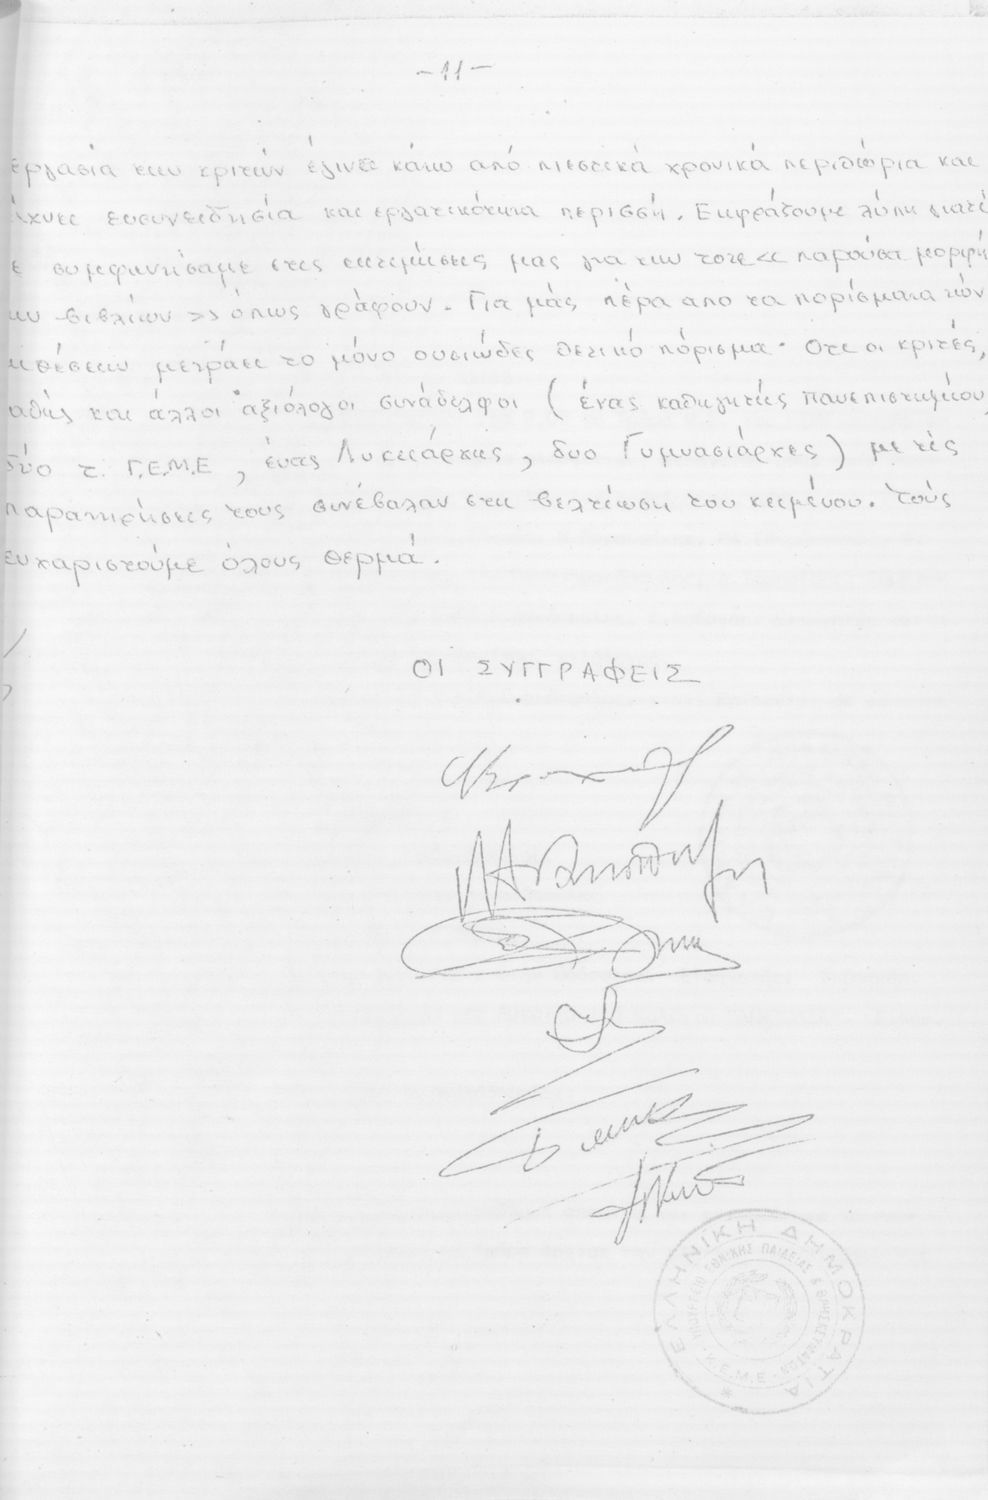 -11-
εργασία των κριτών έγινε κάτω από πιεστικά χρονικά περιθώρια και
ευσυνειδησία και εργατικότητα περισσή. Εκφράζουμε λύπη γιατί
συμφωνήσαμε στις εκτιμήσεις μας για την τότε << παρούσα μορφή
των βιβλίων >> όπως γράφουν. Για μάς πέρα απο τα πορίσματα τών
μετράει το μόνο ουσιώδες θετικό πόρισμα· Οτι οι κριτές,
αθώς και άλλοι αξιόλογοι συνάδελφοι ( ένας καθηγητής πανεπιστημίου,
δύο τ. Γ.Ε.Μ.Ε , ένας Λυκειάρχης , δυο Γυμνασιάρχες ) με τίς
παρατηρήσεις τους συνέβαλαν στη βελτίωση του κειμένου. Τούς
ευχαριστούμε όλους θερμά.
ΟΙ ΣΥΓΓΡΑΦΕΙΣ
ΕΛΛΗΝΙΚΗ ΔΗΜΟΚΡΑΤΙΑ
ΥΠΟΥΡΓΕΙΟ ΕΘΝΙΚΗΣ ΠΑΙΔΕΙΑΣ & ΘΡΗΣΚΕΥΜΑΤΩΝ
Κ.Ε.Μ.Ε